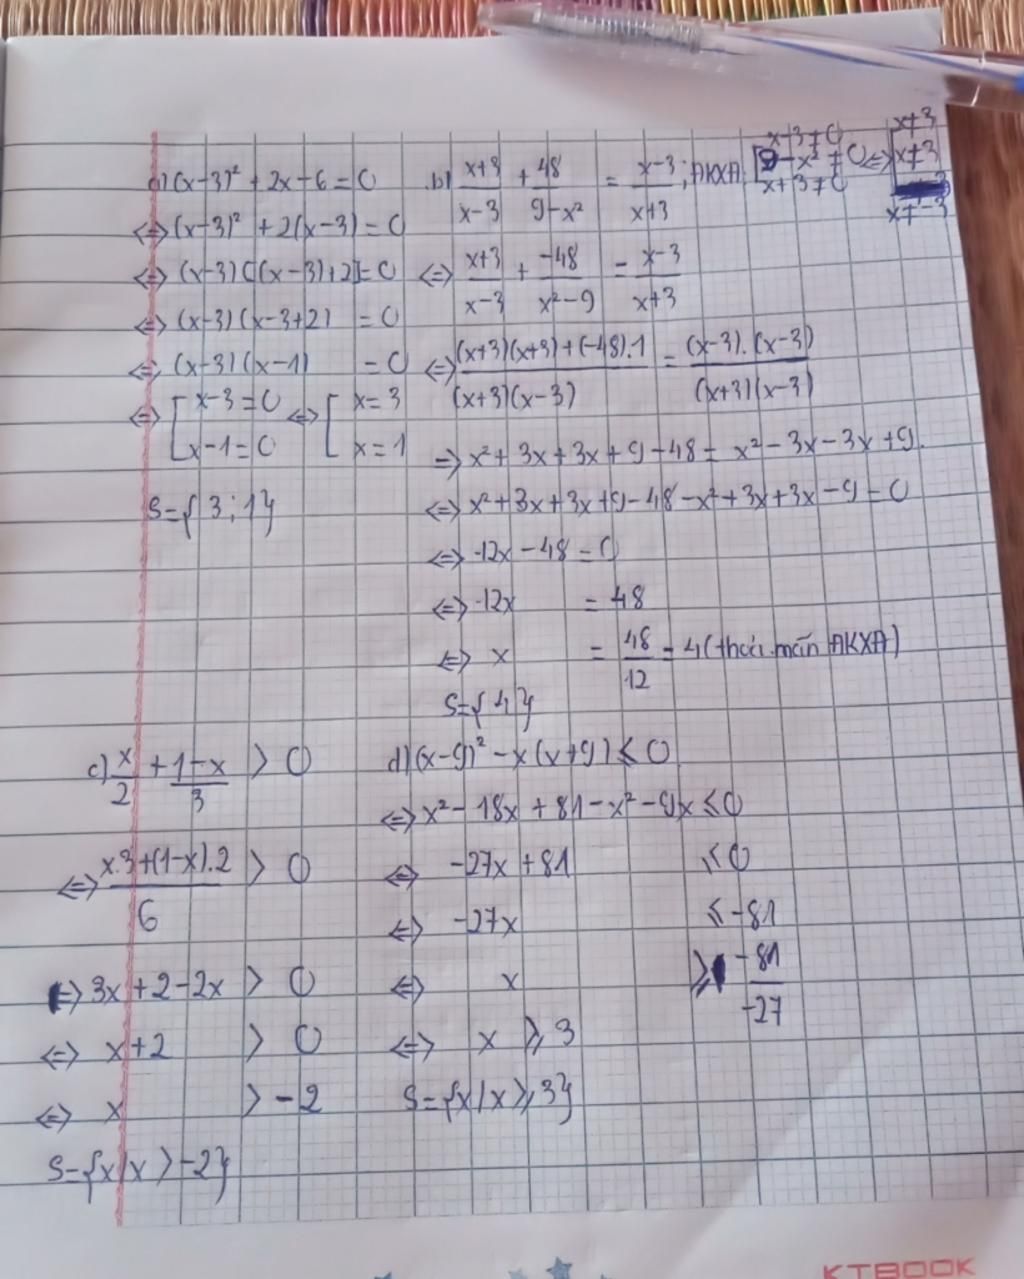 a) (x-3)² + 2x-6 = 0
<=> (x-3)² + 2(x-3) = 0
<=> (x-3)[(x-3)+2] = 0
<=> (x-3)(x-3+2) = 0
<=> (x-3)(x-1) = 0
<=> [x-3=0 <=> [x=3
x-1=0 x=1
S={3;1}
b) (x+3)/(x-3) + 48/(9-x²) = (x-3)/(x+3); ĐKXĐ
x-3≠0 x≠3
[9-x²≠0 <=> [x≠3
x+3≠0 x≠-3
<=> (x+3)/(x-3) + (-48)/(x²-9) = (x-3)/(x+3)
<=> ((x+3)(x+3)+(-48).1)/((x+3)(x-3)) = ((x-3).(x-3))/((x+3)(x-3))
=> x²+3x+3x+9-48 = x²-3x-3x+9
<=> x²+3x+3x+9-48-x²+3x+3x-9=0
<=> -12x-48=0
<=> -12x = 48
<=> x = 48/12 = 4 (thỏa mãn ĐKXĐ)
S={4}
c) x/2 + (1-x)/3 > 0
<=> (x.3+(1-x).2)/6 > 0
<=> 3x+2-2x > 0
<=> x+2 > 0
<=> x > -2
S={x/x>-2}
d) (x-9)²-x(x+9) ≤ 0
<=> x²-18x+81-x²-9x ≤ 0
<=> -27x+81 ≤ 0
<=> -27x ≤ -81
<=> x ≥ -81/-27
<=> x ≥ 3
S={x/x≥3}
KTBOOK